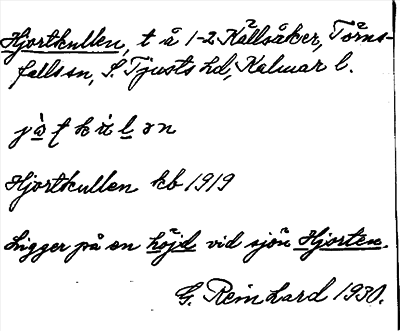 Hjortkullen, t å 1-2 Källsåker, Törns-
falls sn, S. Tjusts hd, Kalmar l.
Hjortkullen kb 1919
Ligger på en höjd vid sjön Hjorten.
G. Reinhard 1930.